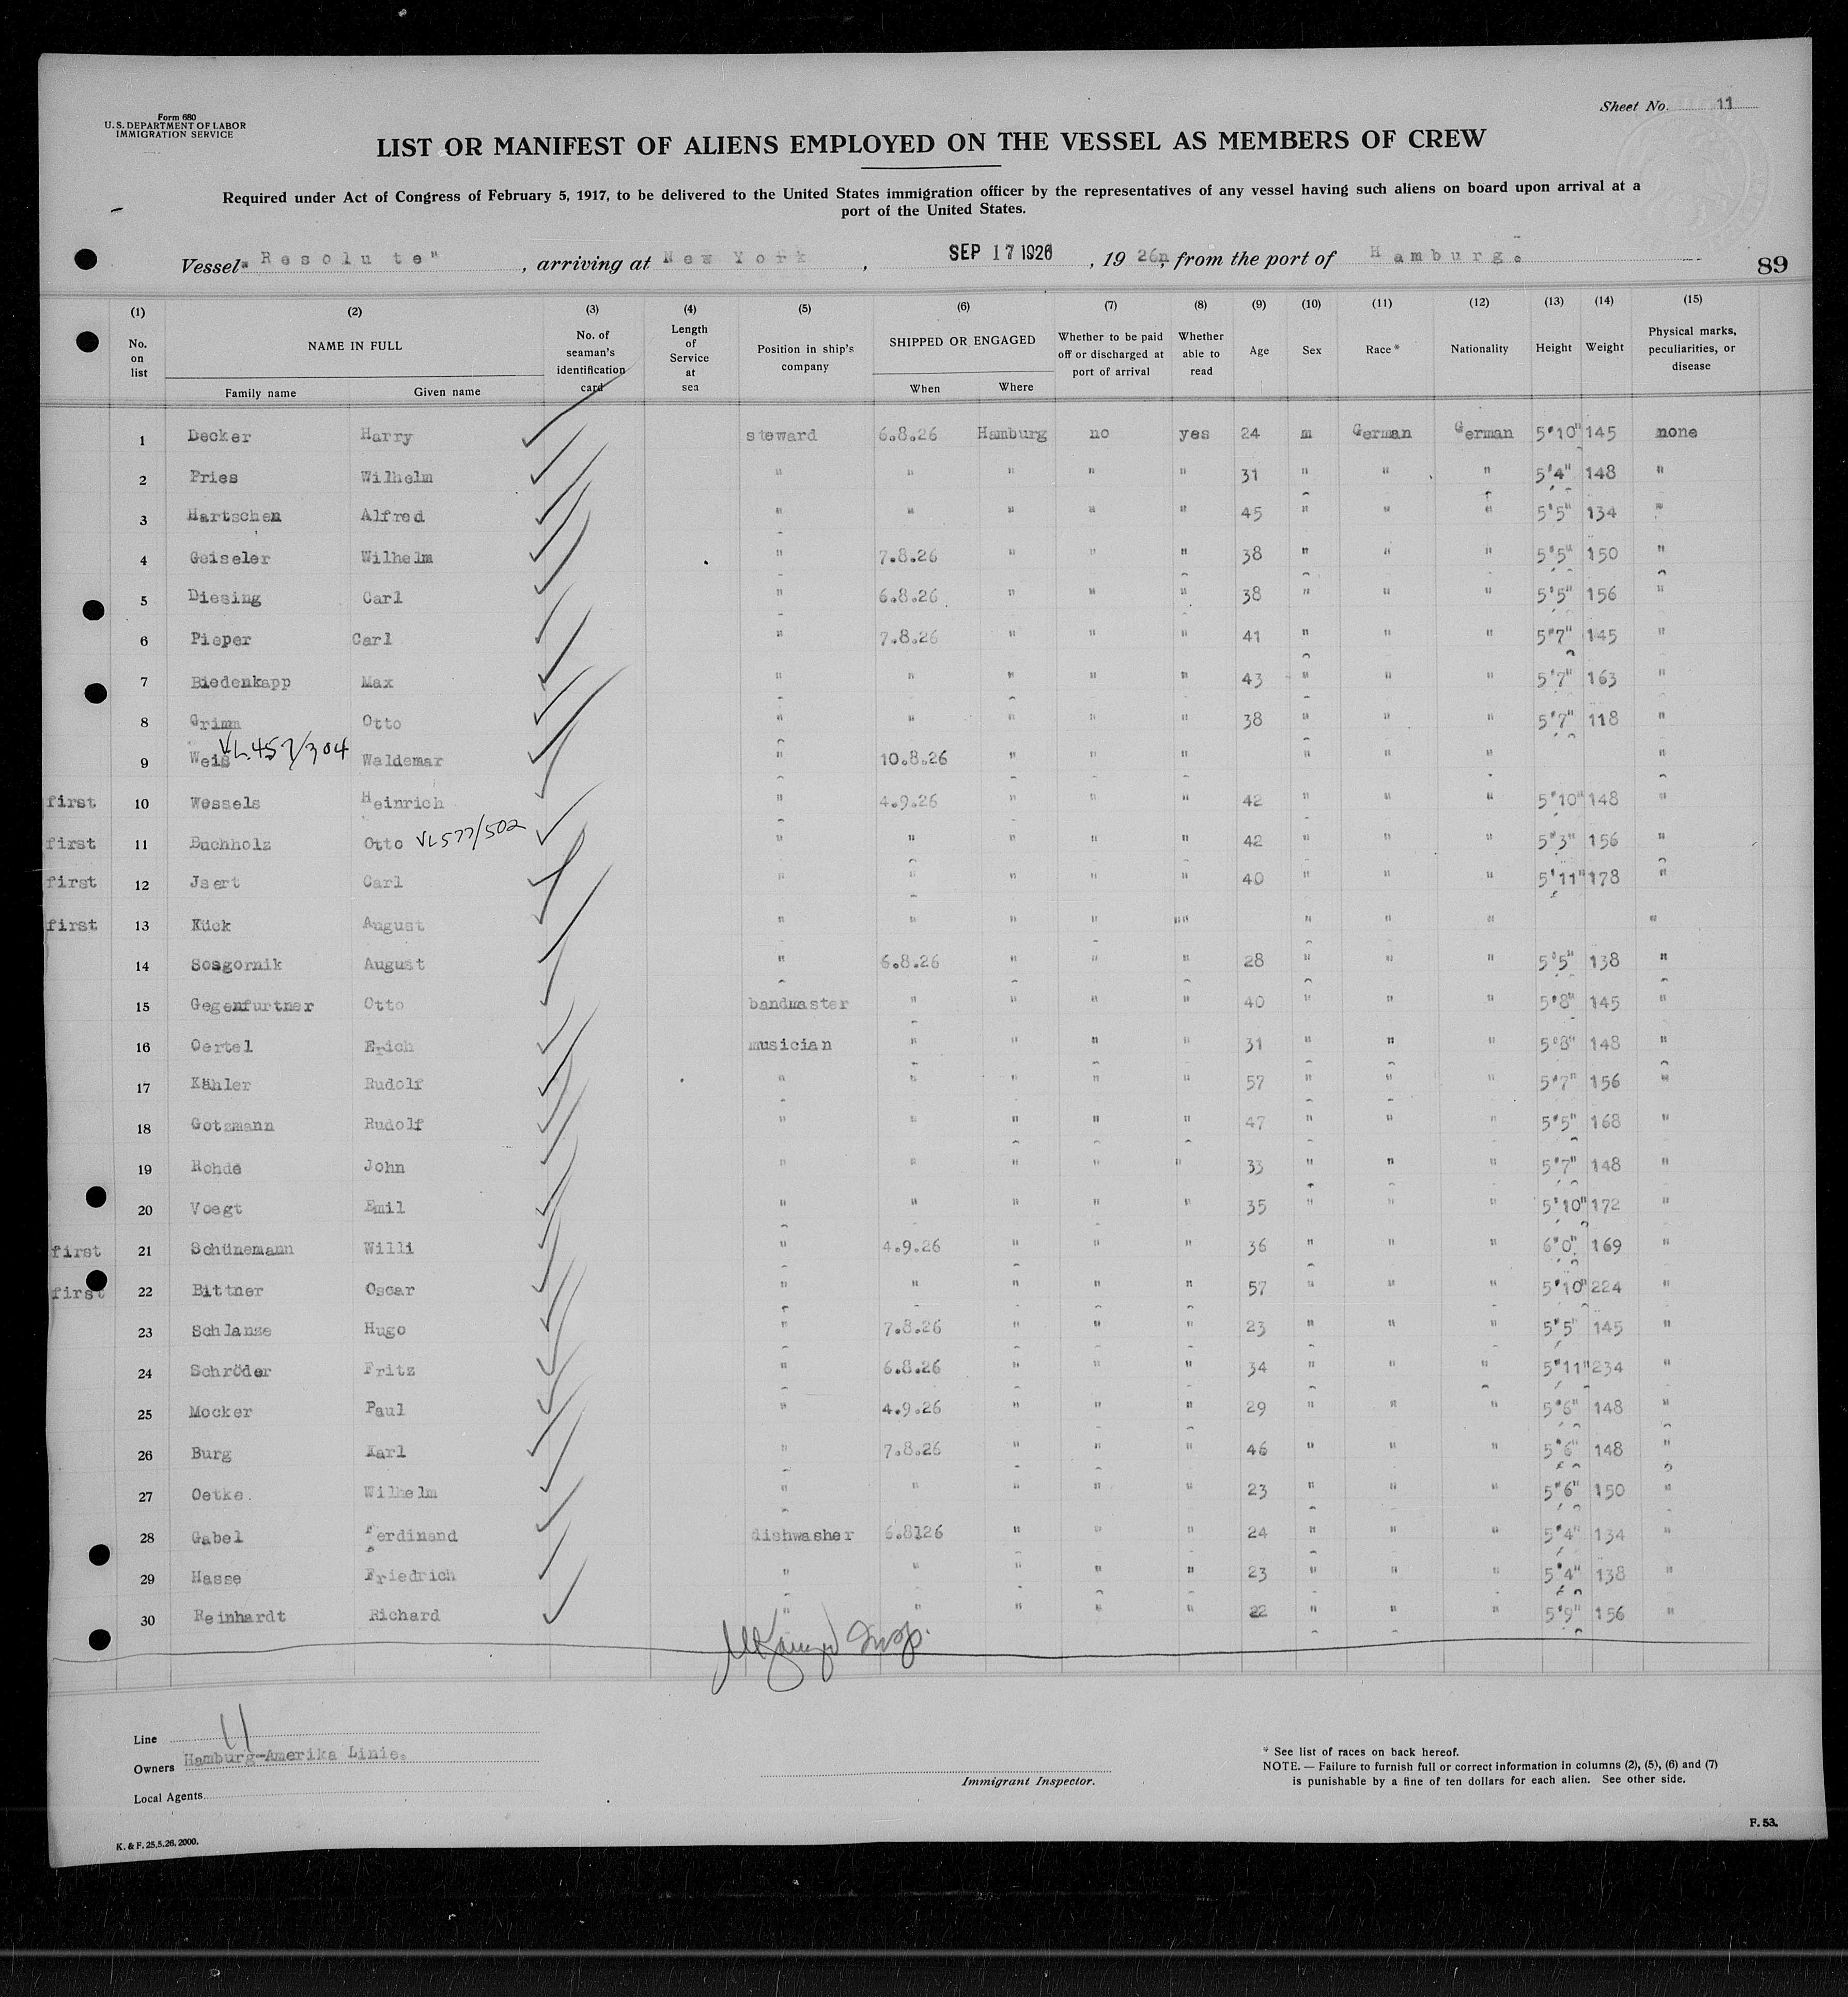 Form 680
U. S. DEPARTMENT OF LABOR
IMMIGRATION SERVICE
Sheet No. 11
LIST OR MANIFEST OF ALIENS EMPLOYED ON THE VESSEL AS MEMBERS OF CREW
Required under Act of Congress of February 5, 1917, to be delivered to the United States immigration officer by the representatives of any vessel having such aliens on board upon arrival at a
port of the United States.
Vessel "Resolute", arriving at New York, SEP 17 1926, 19 26, from the port of Hamburg.
89
(1) (2) (3) (4) (5) (6) (7) (8) (9) (10) (11) (12) (13) (14) (15)
No. on list NAME IN FULL No. of seaman's identification card Length of Service at sea Position in ship's company SHIPPED OR ENGAGED Whether to be paid off or discharged at port of arrival Whether able to read Age Sex Race* Nationality Height Weight Physical marks, peculiarities, or disease
Family name Given name When Where
1 Decker Harry steward 6.8.26 Hamburg no yes 24 m German German 5'10" 145 none
2 Fries Wilhelm " " " " " 31 " " " 5'4" 148 "
3 Hartschen Alfred " " " " " 45 " " " 5'5" 134 "
4 Geiseler Wilhelm " 7.8.26 " " " 38 " " " 5'5" 150 "
5 Diesing Carl " 6.8.26 " " " 38 " " " 5'5" 156 "
6 Pieper Carl " 7.8.26 " " " 41 " " " 5'7" 145 "
7 Biedenkapp Max " " " " " 43 " " " 5'7" 163 "
8 Grimm Otto " " " " " 38 " " " 5'7" 118 "
9 Weis VL.457/304 Waldemar " 10.8.26 " " " " " " "
first 10 Wessels Heinrich " 4.9.26 " " " 42 " " " 5'10" 148 "
first 11 Buchholz Otto VL577/502 " " " " " 42 " " " 5'3" 156 "
first 12 Jsert Carl " " " " " 40 " " " 5'11" 178 "
first 13 Kück August " " " " "" " " " "
14 Sosgornik August " 6.8.26 " " " 28 " " " 5'5" 138 "
15 Gegenfurtner Otto bandmaster " " " " 40 " " " 5'8" 145 "
16 Oertel Erich musician " " " " 31 " " " 5'8" 148 "
17 Kähler Rudolf " " " " " 57 " " " 5'7" 156 "
18 Gotzmann Rudolf " " " " " 47 " " " 5'5" 168 "
19 Rohde John " " " " " 33 " " " 5'7" 148 "
20 Voegt Emil " " " " " 35 " " " 5'10" 172 "
first 21 Schünemann Willi " 4.9.26 " " " 36 " " " 6'0" 169 "
first 22 Bittner Oscar " " " " " 57 " " " 5'10" 224 "
23 Schlanze Hugo " 7.8.26 " " " 23 " " " 5'5" 145 "
24 Schröder Fritz " 6.8.26 " " " 34 " " " 5'11" 234 "
25 Mocker Paul " 4.9.26 " " " 29 " " " 5'6" 148 "
26 Burg Karl " 7.8.26 " " " 46 " " " 5'6" 148 "
27 Oetke. Wilhelm " " " " " 23 " " " 5'6" 150 "
28 Gabel Ferdinand dishwasher 6.8126 " " " 24 " " " 5'4" 134 "
29 Hasse Friedrich " " " " " 23 " " " 5'4" 138 "
30 Reinhardt Richard " " " " " 22 " " " 5'9" 156 "
Insp.
Line 11
Owners Hamburg-Amerika Linie.
Local Agents
Immigrant Inspector.
* See list of races on back hereof.
NOTE. — Failure to furnish full or correct information in columns (2), (5), (6) and (7)
is punishable by a fine of ten dollars for each alien. See other side.
K. & F. 25.5.26. 2000.
F. 53.